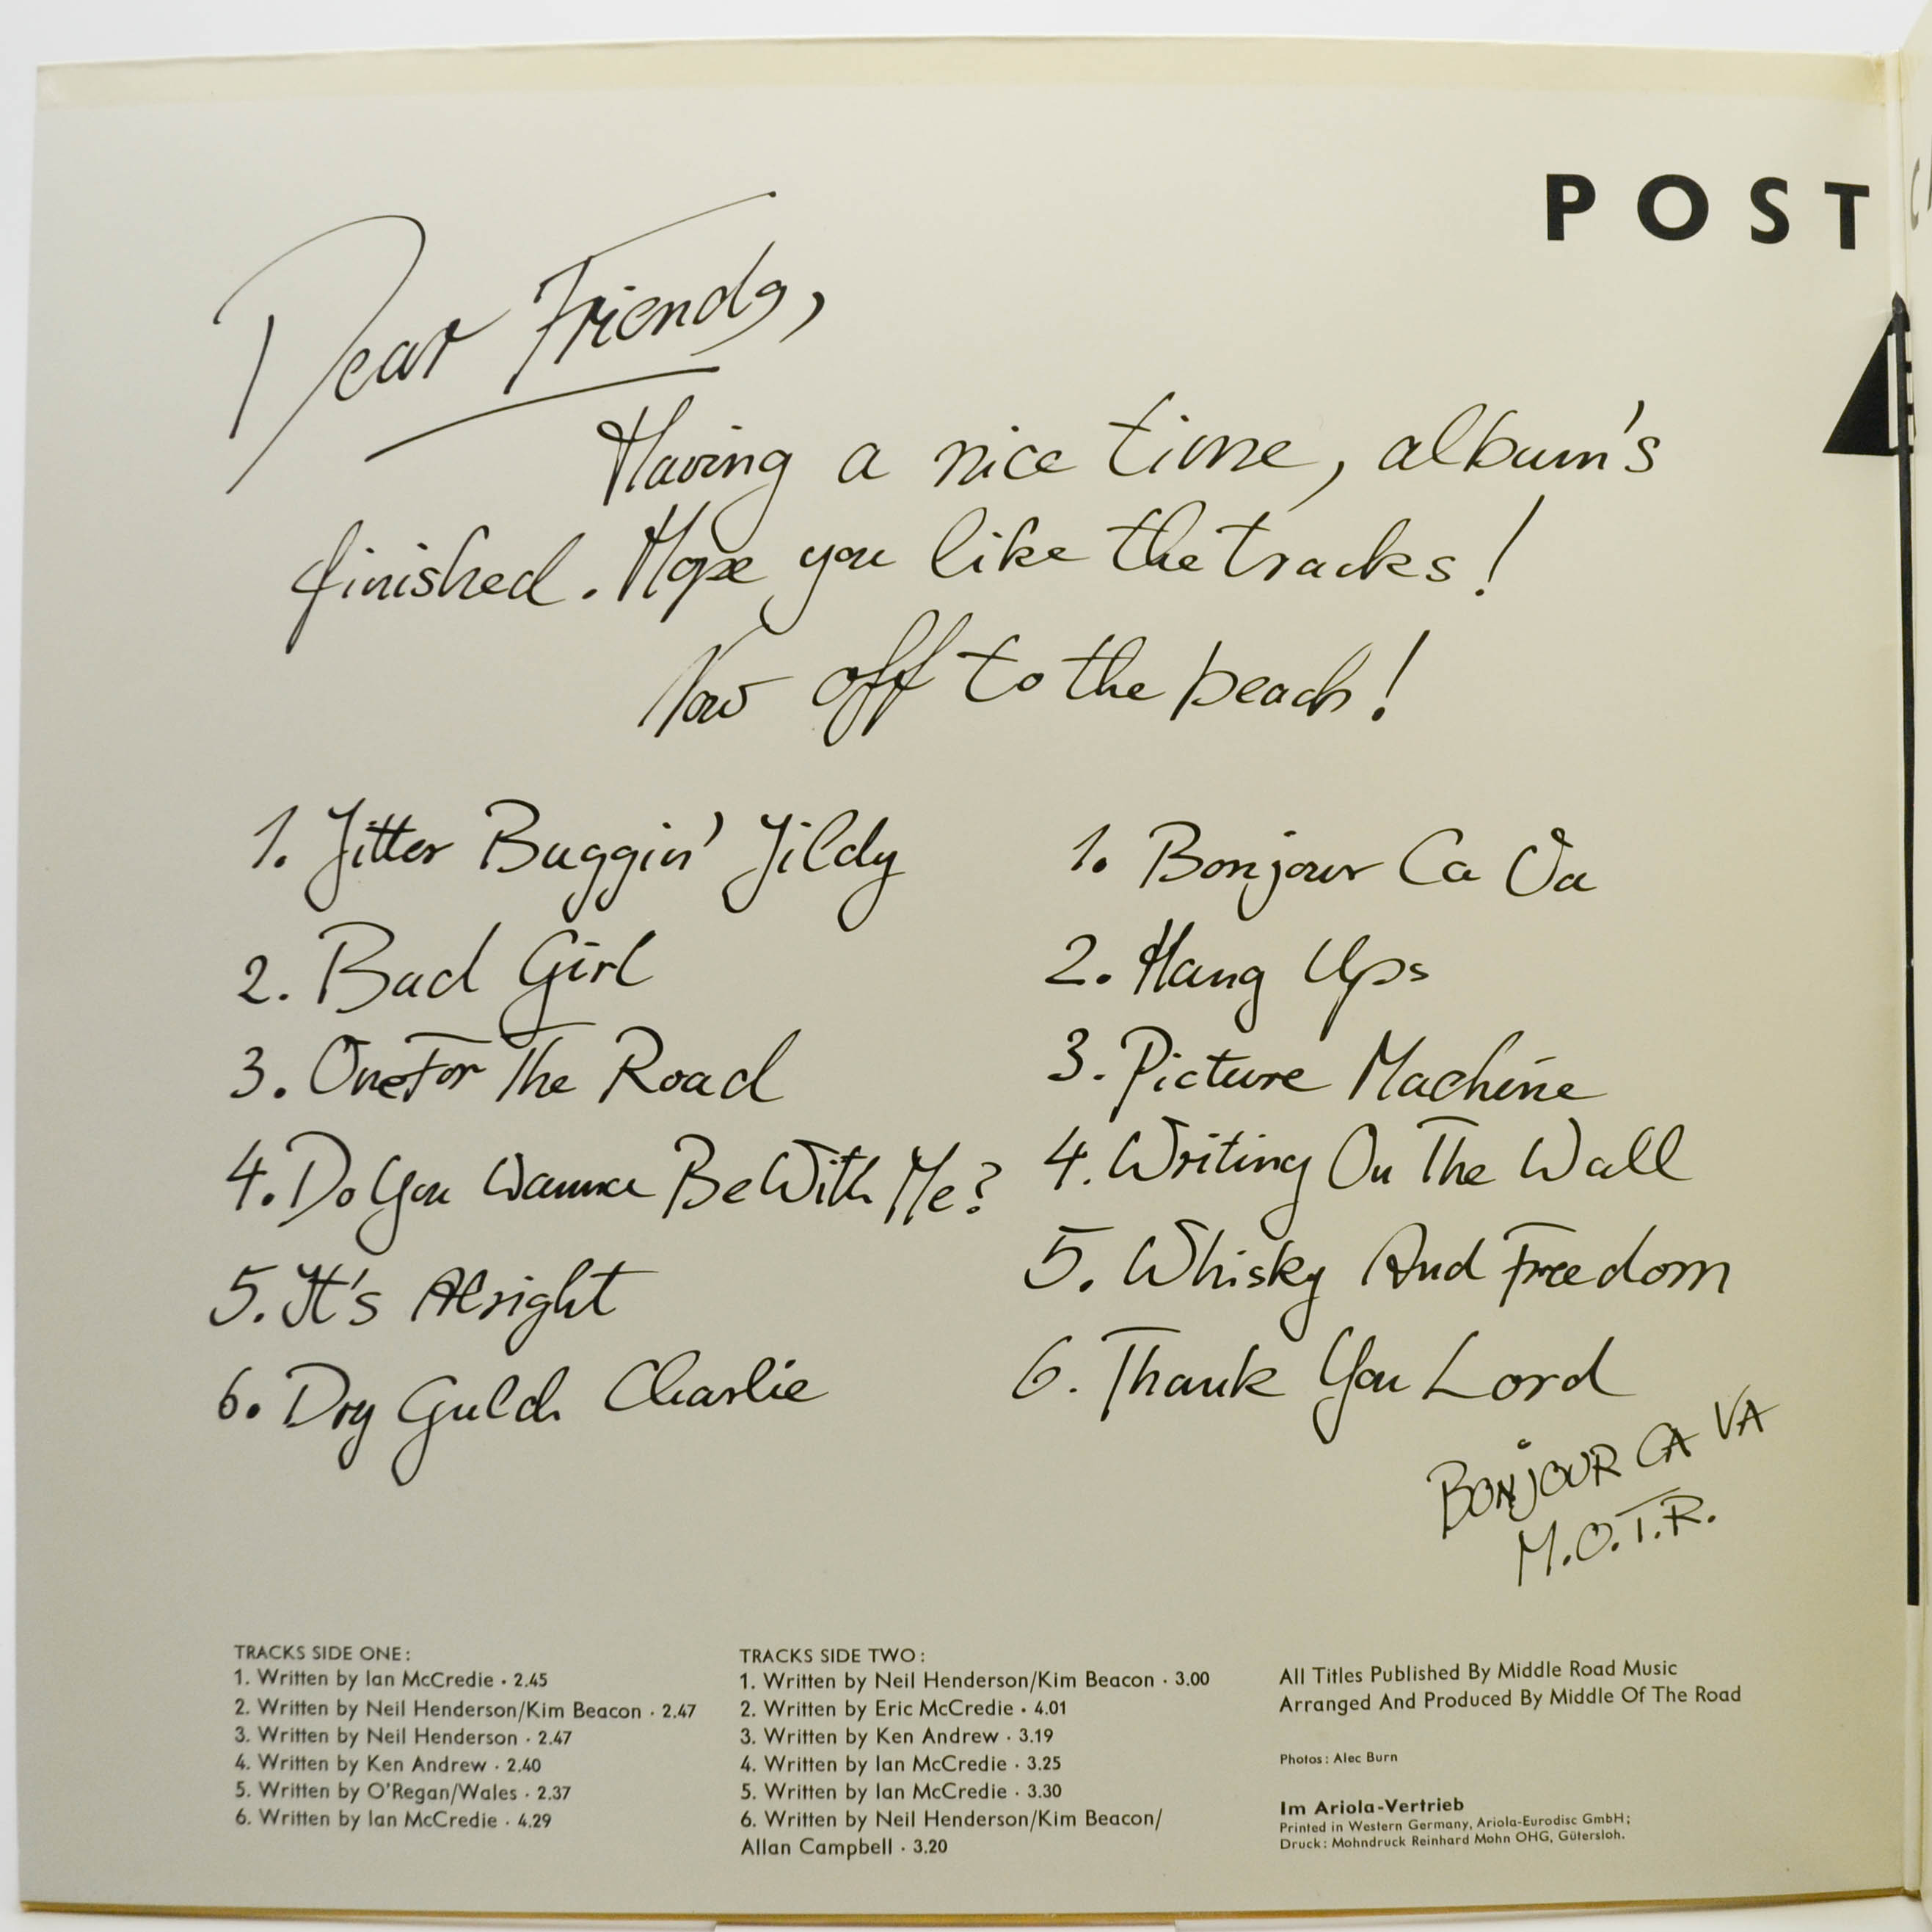 POST
Dear Friends,
Having a nice time, album's
finished. Hope you like the tracks!
Now off to the beach!
1. Jitter Buggin' Jildy
2. Bad Girl
3. One For The Road
4. Do You Wanna Be With Me?
5. It's Alright
6. Dry Gulch Charlie
1. Bonjour Ca Va
2. Hang Ups
3. Picture Machine
4. Writing On The Wall
5. Whisky And Freedom
6. Thank You Lord
BONJOUR CA VA
M.O.T.R.
TRACKS SIDE ONE:
1. Written by Ian McCredie · 2.45
2. Written by Neil Henderson/Kim Beacon · 2.47
3. Written by Neil Henderson · 2.47
4. Written by Ken Andrew · 2.40
5. Written by O'Regan/Wales · 2.37
6. Written by Ian McCredie · 4.29
TRACKS SIDE TWO:
1. Written by Neil Henderson/Kim Beacon · 3.00
2. Written by Eric McCredie · 4.01
3. Written by Ken Andrew · 3.19
4. Written by Ian McCredie · 3.25
5. Written by Ian McCredie · 3.30
6. Written by Neil Henderson/Kim Beacon/
Allan Campbell · 3.20
All Titles Published By Middle Road Music
Arranged And Produced By Middle Of The Road
Photos: Alec Burn
Im Ariola-Vertrieb
Printed in Western Germany, Ariola-Eurodisc GmbH;
Druck: Mohndruck Reinhard Mohn OHG, Gütersloh.